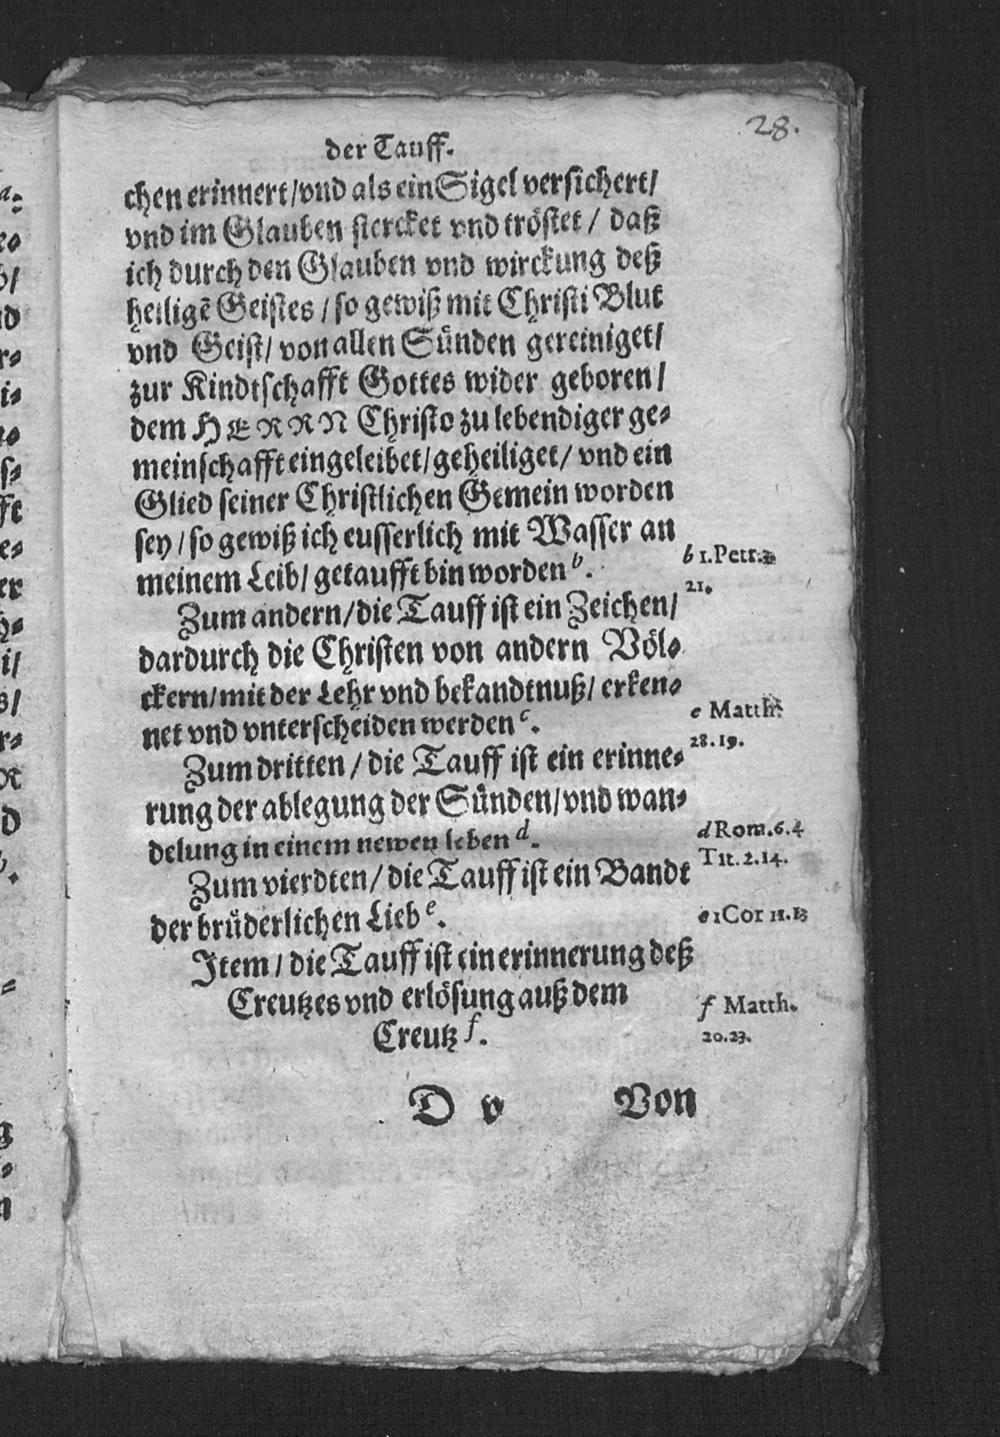 28.
der Tauff.
chen erinnert/vnd als ein Sigel versichert/
vnd im Glauben stercket vnd tröstet/ daß
ich durch den Glauben vnd wirckung deß
heiligē Geistes/so gewiß mit Christi Blut
vnd Geist/von allen Sünden gereiniget/
zur Kindtschafft Gottes wider geboren/
dem HERRN Christo zu lebendiger ge-
meinschafft eingeleibet/geheiliget/vnd ein
Glied seiner Christlichen Gemein worden
sey/so gewiß ich eusserlich mit Wasser an
meinem Leib/getaufft bin worden b.
b 1.Petr.3
21.
Zum andern/die Tauff ist ein Zeichen/
dardurch die Christen von andern Völ-
ckern/mit der Lehr vnd bekandtnuß/erken-
net vnd vnterscheiden werden c.
c Matth.
28.19.
Zum dritten/die Tauff ist ein erinne-
rung der ablegung der Sünden/vnd wan-
delung in einem newen leben d.
d Rom.6.4
Tit.2.14.
Zum vierdten/die Tauff ist ein Bandt
der brüderlichen Lieb e.
e 1Cor 12.13
Item/die Tauff ist ein erinnerung deß
Creutzes vnd erlösung auß dem
Creutz f.
f Matth.
20.23.
D v Von